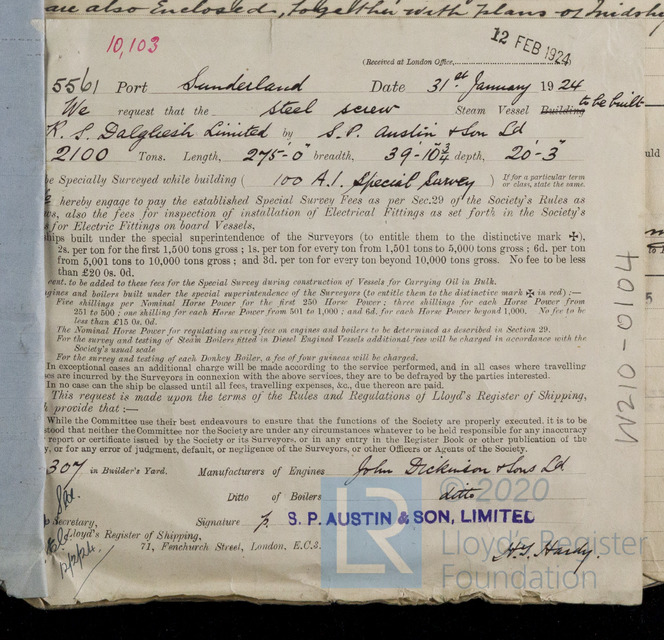 are also Enclosed, together with plans of Midship
10,103
12 FEB 1924
(Received at London Office,
5561 Port Sunderland Date 31st January 1924
We request that the steel screw Steam Vessel Building to be built
R. S. Dalgliesh Limited by S. P. Austin & Son Ld
2100 Tons. Length, 275'-0" breadth, 39'-10¾" depth, 20'-3"
be Specially Surveyed while building ( 100 A.1. Special Survey ) If for a particular term or class, state the same.
hereby engage to pay the established Special Survey Fees as per Sec. 29 of the Society's Rules as
ws, also the fees for inspection of installation of Electrical Fittings as set forth in the Society's
s for Electric Fittings on board Vessels,
hips built under the special superintendence of the Surveyors (to entitle them to the distinctive mark ✠),
2s. per ton for the first 1,500 tons gross; 1s. per ton for every ton from 1,501 tons to 5,000 tons gross; 6d. per ton
from 5,001 tons to 10,000 tons gross; and 3d. per ton for every ton beyond 10,000 tons gross. No fee to be less
than £20 0s. 0d.
cent. to be added to these fees for the Special Survey during construction of Vessels for Carrying Oil in Bulk.
ngines and boilers built under the special superintendence of the Surveyors (to entitle them to the distinctive mark ✠ in red) :—
Five shillings per Nominal Horse Power for the first 250 Horse Power; three shillings for each Horse Power from
251 to 500; one shilling for each Horse Power from 501 to 1,000; and 6d. for each Horse Power beyond 1,000. No fee to be
less than £15 0s. 0d.
The Nominal Horse Power for regulating survey fees on engines and boilers to be determined as described in Section 29.
For the survey and testing of Steam Boilers fitted in Diesel Engined Vessels additional fees will be charged in accordance with the
Society's usual scale
For the survey and testing of each Donkey Boiler, a fee of four guineas will be charged.
In exceptional cases an additional charge will be made according to the service performed, and in all cases where travelling
ses are incurred by the Surveyors in connexion with the above services, they are to be defrayed by the parties interested.
In no case can the ship be classed until all fees, travelling expenses, &c., due thereon are paid.
This request is made upon the terms of the Rules and Regulations of Lloyd's Register of Shipping,
h provide that :—
While the Committee use their best endeavours to ensure that the functions of the Society are properly executed, it is to be
stood that neither the Committee nor the Society are under any circumstances whatever to be held responsible for any inaccuracy
report or certificate issued by the Society or its Surveyors, or in any entry in the Register Book or other publication of the
y, or for any error of judgment, default, or negligence of the Surveyors, or other Officers or Agents of the Society.
307 in Builder's Yard. Manufacturers of Engines John Dickinson & Sons Ld
Ditto of Boilers ditto
Secretary, Signature p. S. P. AUSTIN & SON, LIMITED
Lloyd's Register of Shipping,
71, Fenchurch Street, London, E.C.3.
H. T. Hardy.
12/2/24
W210-0104
uld
LR
© 2020
Lloyd's Register
Foundation